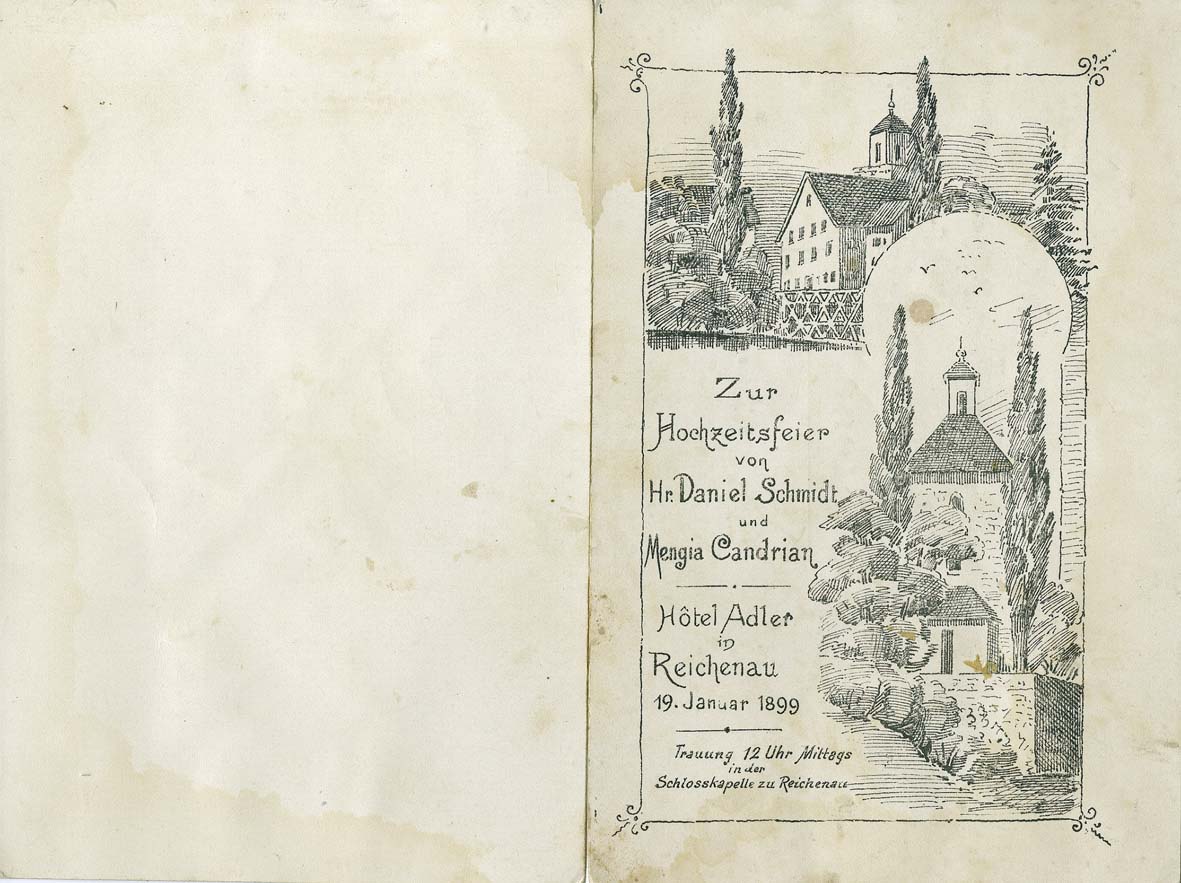 Zur
Hochzeitsfeier
von
Hr. Daniel Schmidt
und
Mengia Candrian
Hôtel Adler
in
Reichenau
19. Januar 1899
Trauung 12 Uhr Mittags
in der
Schlosskapelle zu Reichenau